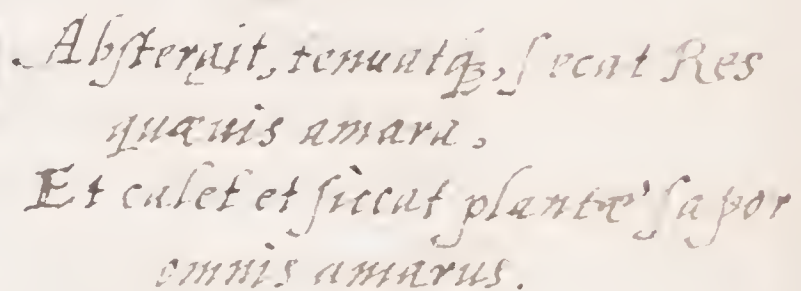 Abstergit, tenuatq́ꝫ, ſecat Res
quæuis amara,
Et calet et ſiccat plantæ ſapor
omnis amarus.